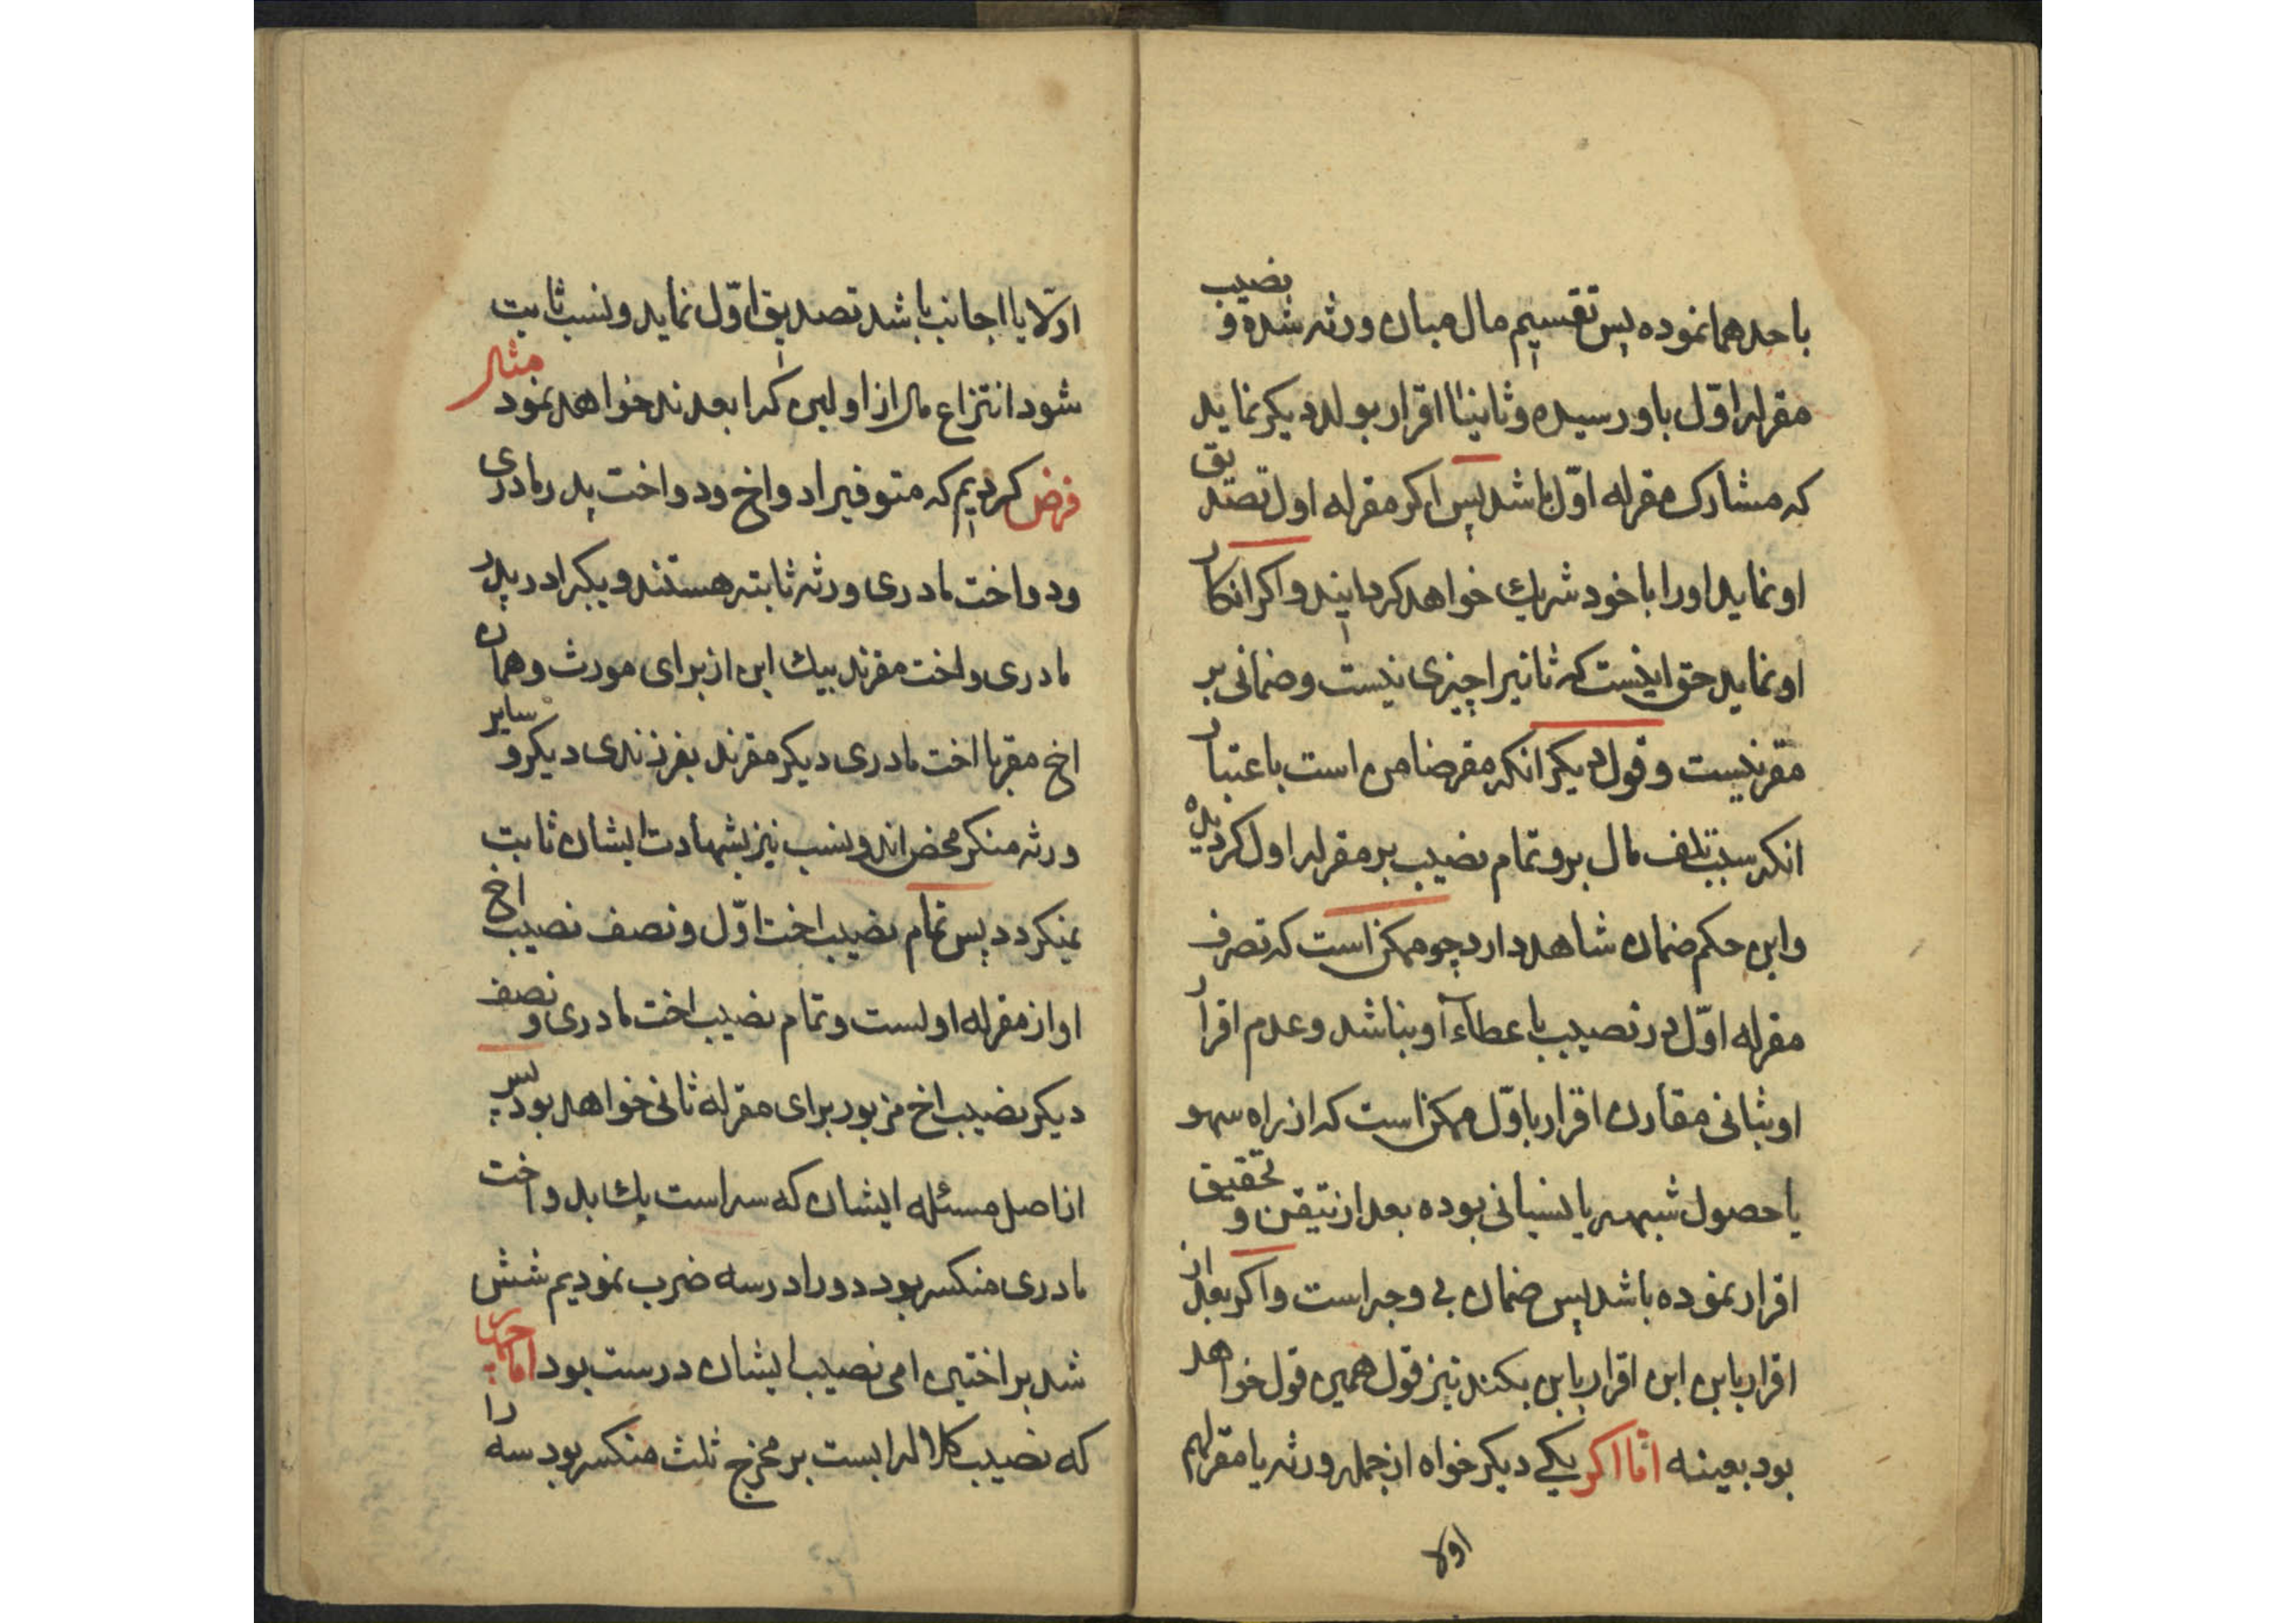 باحدهما نموده پس تقسیم مال میان ورثه شده و نصیب
مقرله اول باو رسیده و ثانیا اقرار بولد دیکر نماید
که مشارک مقرله اول باشد پس اکر مقرله اول تصدیق
او نماید اورا با خود شریك خواهد کردانید و اکر انکار
او نماید حق اینست که ثانیرا چیزی نیست و ضمانی بر
مقر نیست و قول دیکر انکه مقر ضامن است باعتبار
انکه سبب تلف مال برو تمام نصیب بر مقرله اول کردیده
و این حکم ضمان شاهد دارد چو ممکن است که تصرف
مقرله اول در نصیب باعطآء او نباشد و عدم اقرار
او بثانی مقارن اقرار باول ممکن است که از راه سهو
یا حصول شبهه یا نسیانی بوده بعد از تیقن و تحقیق
اقرار نموده باشد پس ضمان بی وجه است و اکر بعد از
اقرار باین ابن اقرار باین بکند نیز قول همین قول خواهد
بود بعینه امّا اکر یکی دیکر خواه از جمله ورثه یا مقرلهم
اولا
اولا یا اجانب باشد تصدیق اول نماید و نسب ثابت
شود انتزاع مال از اولین کرا بعدند خواهد نمود مثال
فرض کردیم که متوفیرا دو اخ و دو اخت پدر مادری
و دو اخت مادری ورثه ثابته هستند و یکبرادر پدر
مادری و اخت مقرند بیك ابن از برای مورث و همان
اخ مقر با اخت مادری دیکر مقرند بفرزندی دیکر و سایر
ورثه منکر محض اند و نسب نیز بشهادت ایشان ثابت
نمیکردد پس تمام نصیب اخت اول و نصف نصیب اخ
او از مقرله اولست و تمام نصیب اخت مادری و نصف
دیکر نصیب اخ مزبور برای مقرله ثانی خواهد بود پس
از اصل مسئله ایشان که سه است یك بدو اخت
مادری منکسر بود دو را در سه ضرب نمودیم شش
شد بر اختین امی نصیب ایشان درست بود اما
که نصیب کلاله ابست بر مخرج ثلث منکسر بود سه را